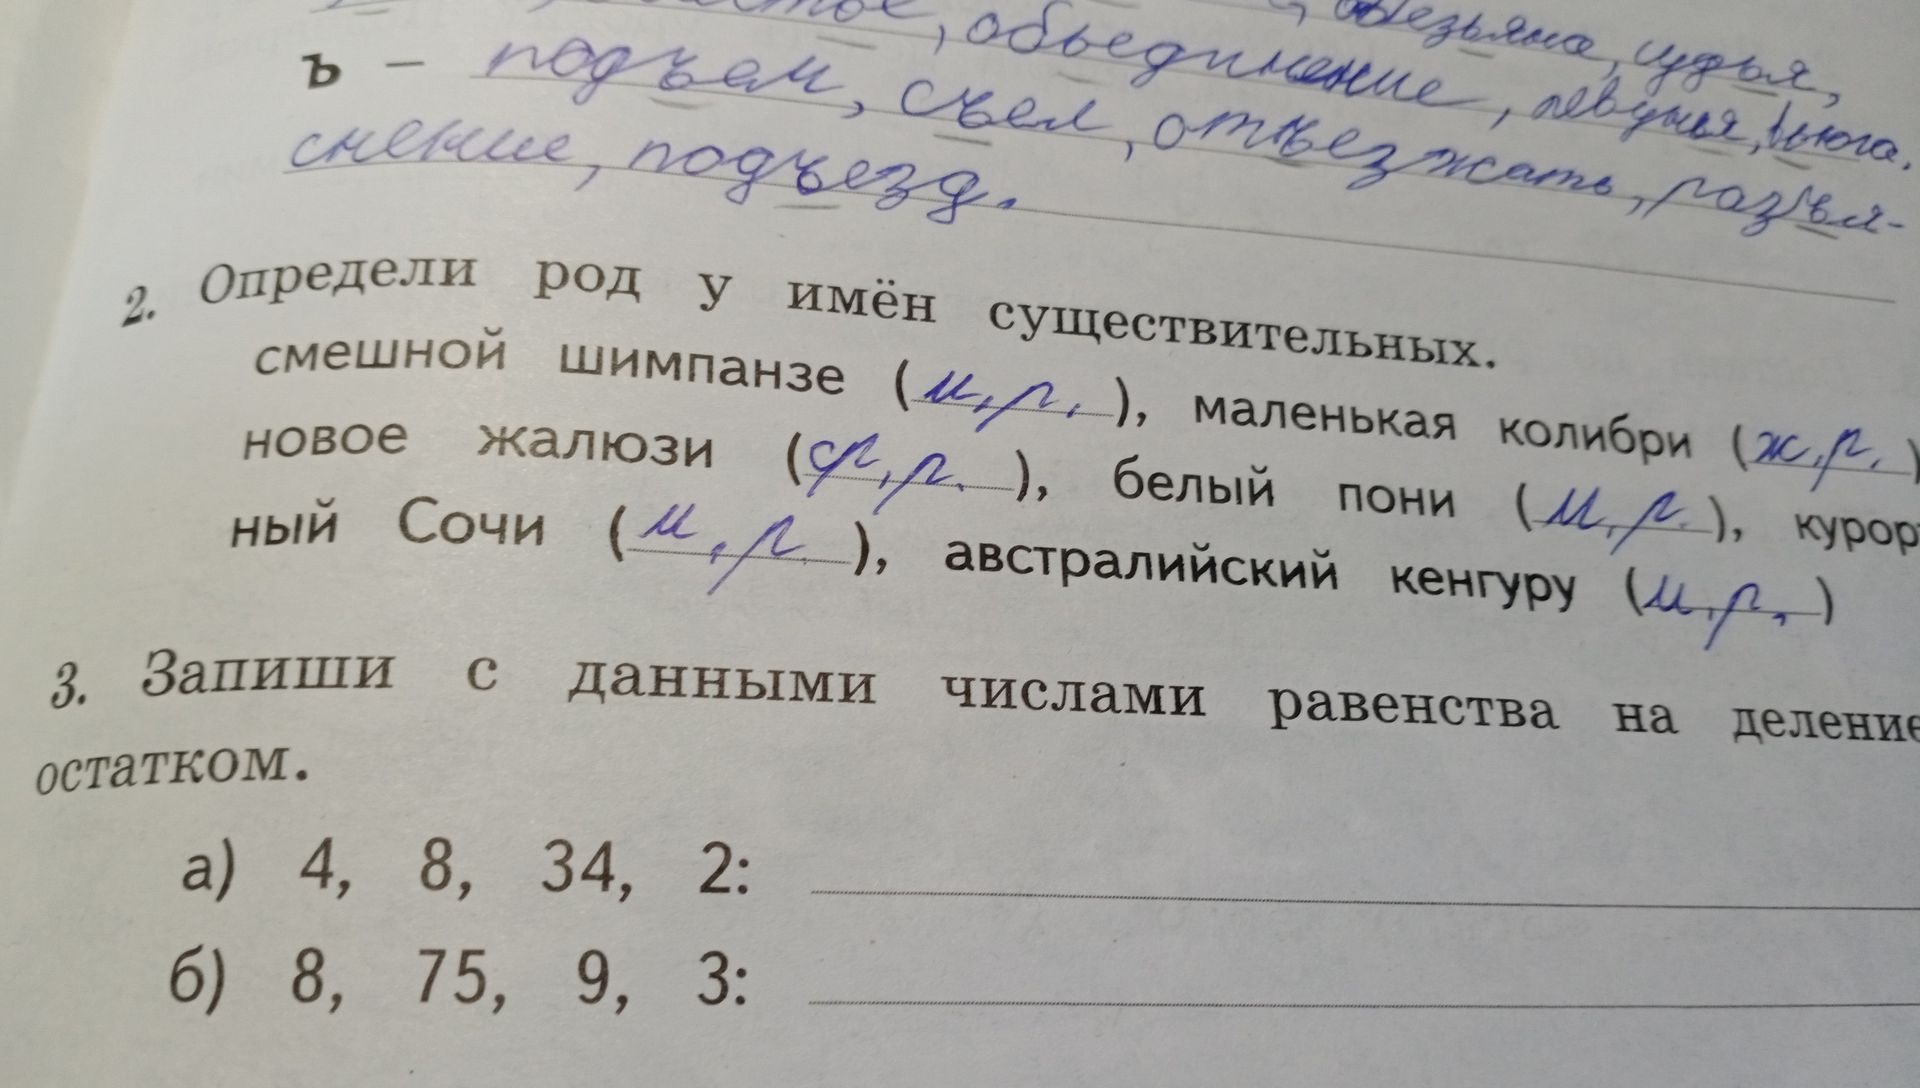 обезьяна, судья,
объединение, певунья, вьюга.
ъ – подъем, съел, отъезжать, разъя-
снение, подъезд.
2. Определи род у имён существительных.
смешной шимпанзе (м.р.), маленькая колибри (ж.р.)
новое жалюзи (ср.р.), белый пони (м.р.), курор
ный Сочи (м.р.), австралийский кенгуру (м.р.)
3. Запиши с данными числами равенства на деление
остатком.
а) 4, 8, 34, 2:
б) 8, 75, 9, 3: